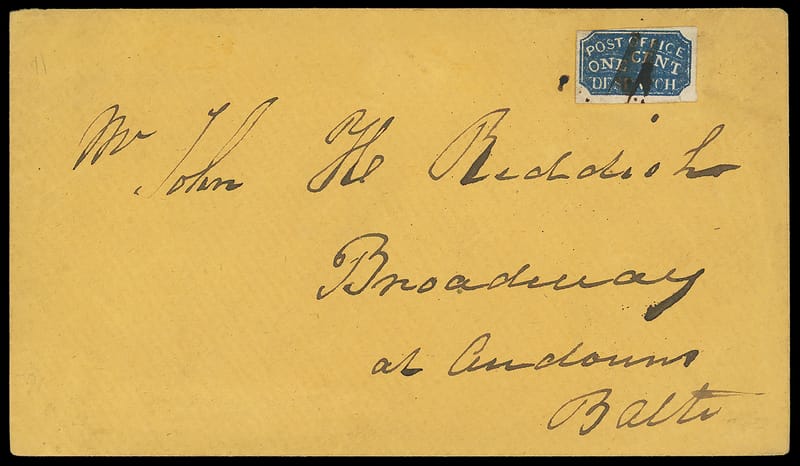 POST OFFICE
ONE CENT
DESPATCH
Mr John H Reddish
Broadway
at
Balto